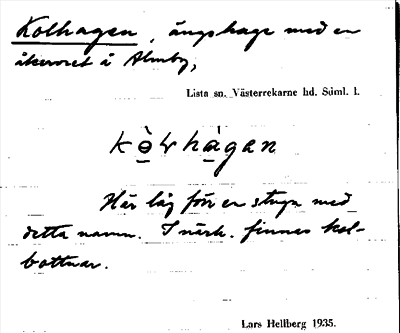 Kolhagen, ängshage med en
åkervret å Almby,
Lista sn. Västerrekarne hd. Söml. l.
kò̠lhà̠gan
Här låg förr en stuga med
detta namn. I närh. finnas kol-
bottnar.
Lars Hellberg 1935.